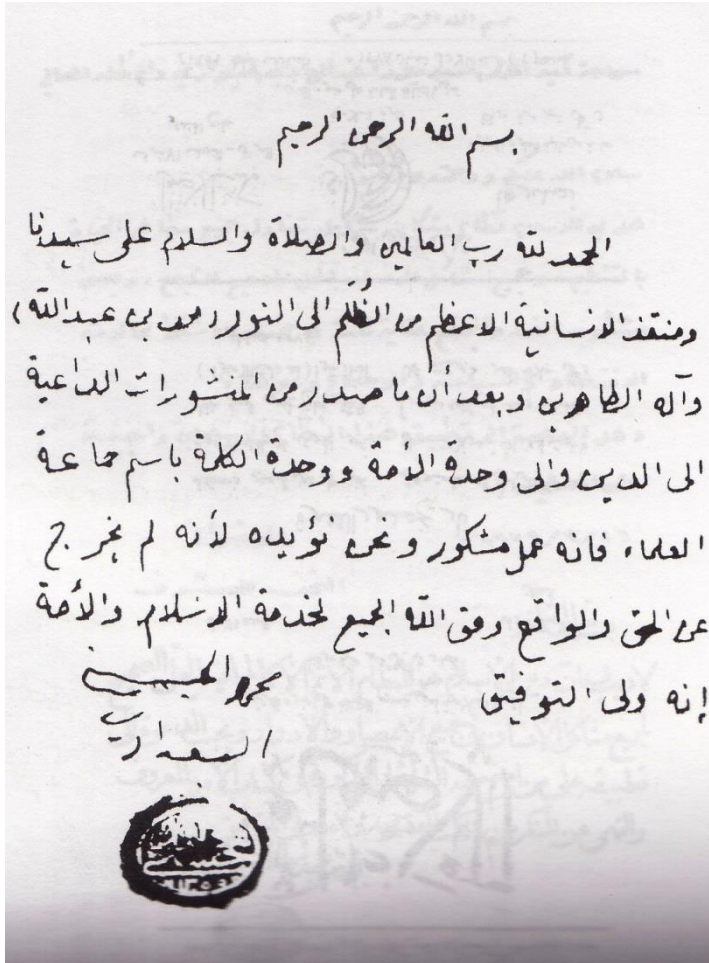 بسم الله الرحمن الرحيم
الحمد لله رب العالمين والصلاة والسلام على سيدنا
ومنقذ الانسانية الاعظم من الظُلَم الى النور (محمد بن عبدالله)
وآله الطاهرين وبعد أن ما صدر من المنشورات الداعية
الى الدين والى وحدة الأمة ووحدة الكلمة باسم جماعة
العلماء فانه عمل مشكور ونحن نؤيده لأنه لم يخرج
عن الحق والواقع وفق الله الجميع لخدمة الاسلام والأمة
إنه ولي التوفيق
محمد الحسني
البغدادي